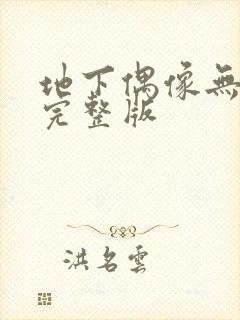 地下偶像無
完整版
洪名雲